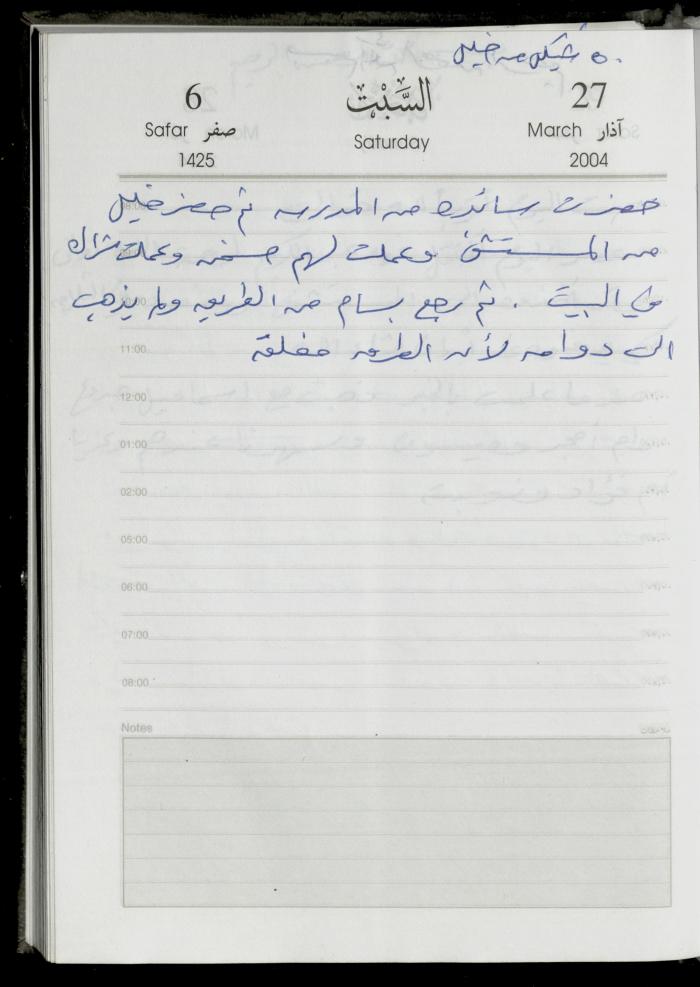 ٥٠ شيكل من خليل
6 السَّبْت 27
Safar صفر Saturday March آذار
1425 2004
حضرت سائده من المدرسه ثم حضر خليل
من المستشفى وعملت لهم صفنه وعملت شراك
في البيت . ثم رجع بسام من الطريق ولم يذهب
الى دوامه لأن الطرق مغلقة
11:00
12:00
01:00
02:00
05:00
06:00
07:00
08:00
Notes